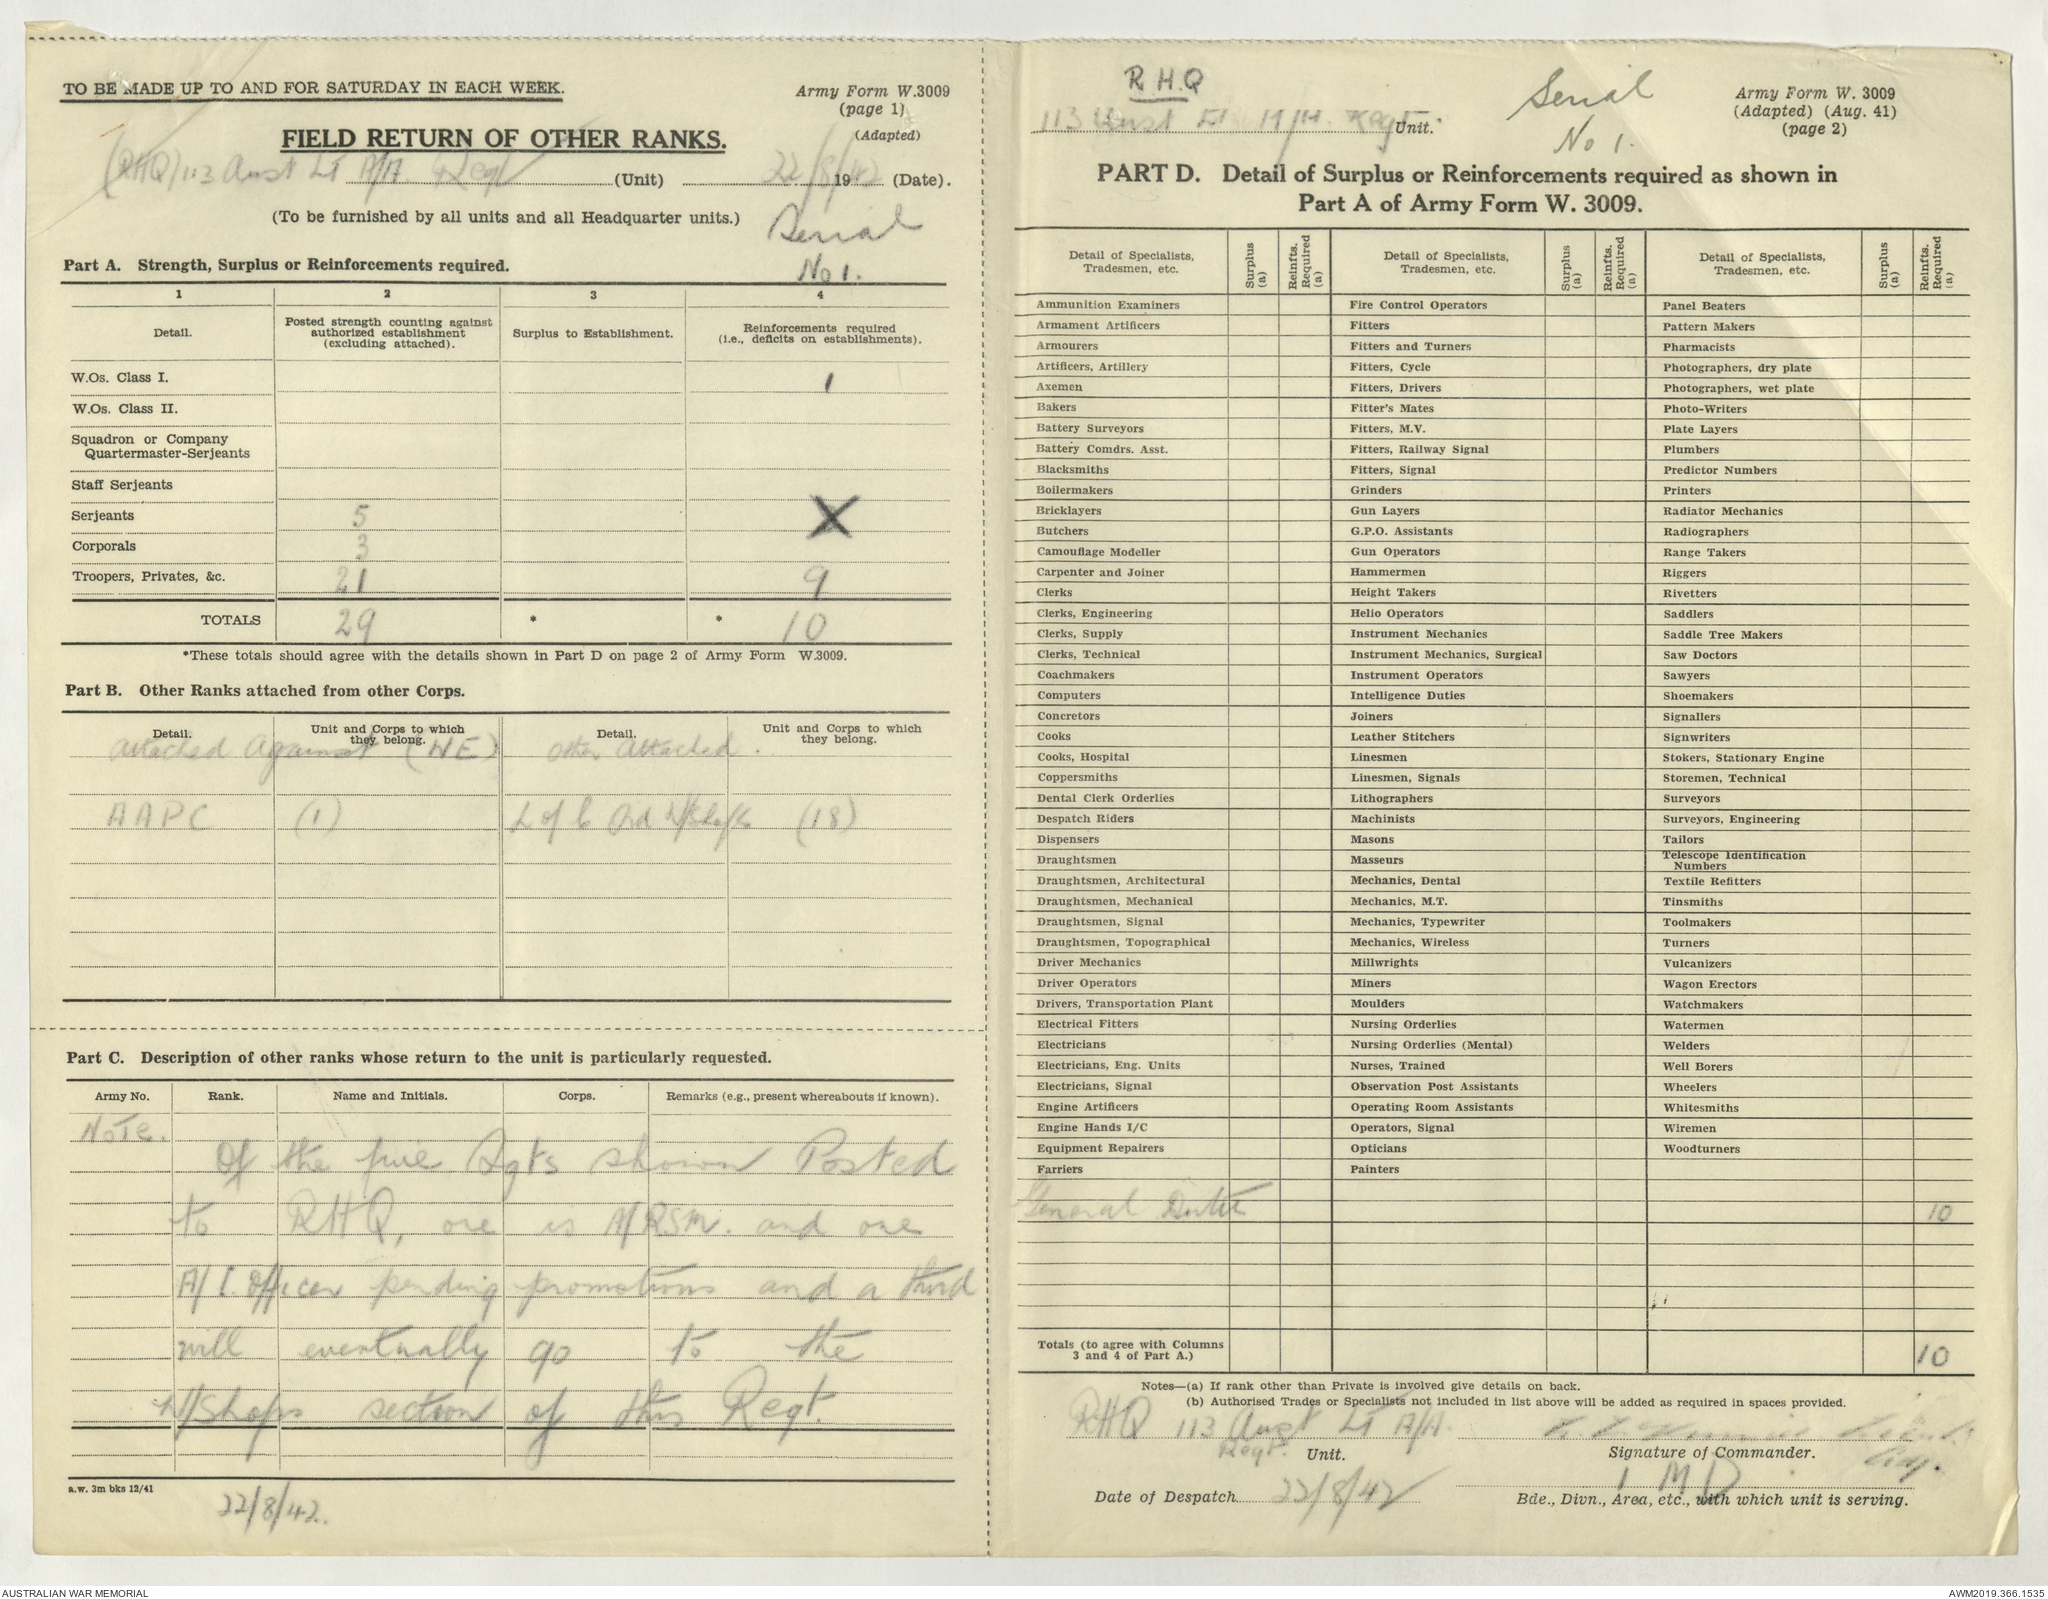 TO BE MADE UP TO AND FOR SATURDAY IN EACH WEEK.
Army Form W.3009
(page 1)
(Adapted)
FIELD RETURN OF OTHER RANKS.
(RHQ) 113 Aust Lt A/A. Regt (Unit) 22/8/1942 (Date).
(To be furnished by all units and all Headquarter units.)
Serial
No 1.
Part A. Strength, Surplus or Reinforcements required.
1 2 3 4
Detail. Posted strength counting against authorized establishment (excluding attached). Surplus to Establishment. Reinforcements required (i.e., deficits on establishments).
W.Os. Class I. 1
W.Os. Class II.
Squadron or Company
Quartermaster-Serjeants
Staff Serjeants
Serjeants 5
Corporals 3
Troopers, Privates, &c. 21 9
TOTALS 29 * * 10
*These totals should agree with the details shown in Part D on page 2 of Army Form W.3009.
Part B. Other Ranks attached from other Corps.
Detail. Unit and Corps to which they belong. Detail. Unit and Corps to which they belong.
Attached Against (WE) Other Attached.
AAPC (1) L of C Ord W/Shops (18)
Part C. Description of other ranks whose return to the unit is particularly requested.
Army No. Rank. Name and Initials. Corps. Remarks (e.g., present whereabouts if known).
Note.
Of the five Sgts shown Posted
to RHQ, one is A/RSM. and one
A/I. Officer pending promotions and a third
will eventually go to the
W/Shops section of this Regt.
a.w. 3m bks 12/41
22/8/42.
RHQ
113 Aust Lt A/A. Regt. Unit.
Serial
No 1.
Army Form W. 3009
(Adapted) (Aug. 41)
(page 2)
PART D. Detail of Surplus or Reinforcements required as shown in
Part A of Army Form W. 3009.
Detail of Specialists, Tradesmen, etc. Surplus (a) Reinfts. Required (a) Detail of Specialists, Tradesmen, etc. Surplus (a) Reinfts. Required (a) Detail of Specialists, Tradesmen, etc. Surplus (a) Reinfts. Required (a)
Ammunition Examiners Fire Control Operators Panel Beaters
Armament Artificers Fitters Pattern Makers
Armourers Fitters and Turners Pharmacists
Artificers, Artillery Fitters, Cycle Photographers, dry plate
Axemen Fitters, Drivers Photographers, wet plate
Bakers Fitter's Mates Photo-Writers
Battery Surveyors Fitters, M.V. Plate Layers
Battery Comdrs. Asst. Fitters, Railway Signal Plumbers
Blacksmiths Fitters, Signal Predictor Numbers
Boilermakers Grinders Printers
Bricklayers Gun Layers Radiator Mechanics
Butchers G.P.O. Assistants Radiographers
Camouflage Modeller Gun Operators Range Takers
Carpenter and Joiner Hammermen Riggers
Clerks Height Takers Rivetters
Clerks, Engineering Helio Operators Saddlers
Clerks, Supply Instrument Mechanics Saddle Tree Makers
Clerks, Technical Instrument Mechanics, Surgical Saw Doctors
Coachmakers Instrument Operators Sawyers
Computers Intelligence Duties Shoemakers
Concretors Joiners Signallers
Cooks Leather Stitchers Signwriters
Cooks, Hospital Linesmen Stokers, Stationary Engine
Coppersmiths Linesmen, Signals Storemen, Technical
Dental Clerk Orderlies Lithographers Surveyors
Despatch Riders Machinists Surveyors, Engineering
Dispensers Masons Tailors
Draughtsmen Masseurs Telescope Identification Numbers
Draughtsmen, Architectural Mechanics, Dental Textile Refitters
Draughtsmen, Mechanical Mechanics, M.T. Tinsmiths
Draughtsmen, Signal Mechanics, Typewriter Toolmakers
Draughtsmen, Topographical Mechanics, Wireless Turners
Driver Mechanics Millwrights Vulcanizers
Driver Operators Miners Wagon Erectors
Drivers, Transportation Plant Moulders Watchmakers
Electrical Fitters Nursing Orderlies Watermen
Electricians Nursing Orderlies (Mental) Welders
Electricians, Eng. Units Nurses, Trained Well Borers
Electricians, Signal Observation Post Assistants Wheelers
Engine Artificers Operating Room Assistants Whitesmiths
Engine Hands I/C Operators, Signal Wiremen
Equipment Repairers Opticians Woodturners
Farriers Painters
General Duties 10
Totals (to agree with Columns 3 and 4 of Part A.) 10
Notes—(a) If rank other than Private is involved give details on back.
(b) Authorised Trades or Specialists not included in list above will be added as required in spaces provided.
RHQ 113 Aust Lt A/A.
Regt. Unit.
Signature of Commander.
1 MD
Date of Despatch 22/8/42
Bde., Divn., Area, etc., with which unit is serving.
AUSTRALIAN WAR MEMORIAL
AWM2019.366.1535